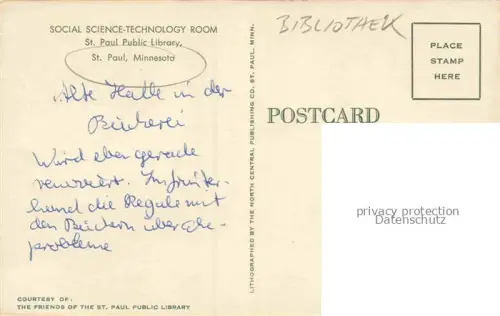 SOCIAL SCIENCE-TECHNOLOGY ROOM
St. Paul Public Library,
St. Paul, Minnesota
Alte Halle in der
Bücherei
Wird eben gerade
renoviert. Im
die Regale mit
den Büchern über Ehe-
probleme
COURTESY OF:
THE FRIENDS OF THE ST. PAUL PUBLIC LIBRARY
LITHOGRAPHED BY THE NORTH CENTRAL PUBLISHING CO. ST. PAUL, MINN.
BIBLIOTHEK
PLACE
STAMP
HERE
POSTCARD
privacy protection
Datenschutz